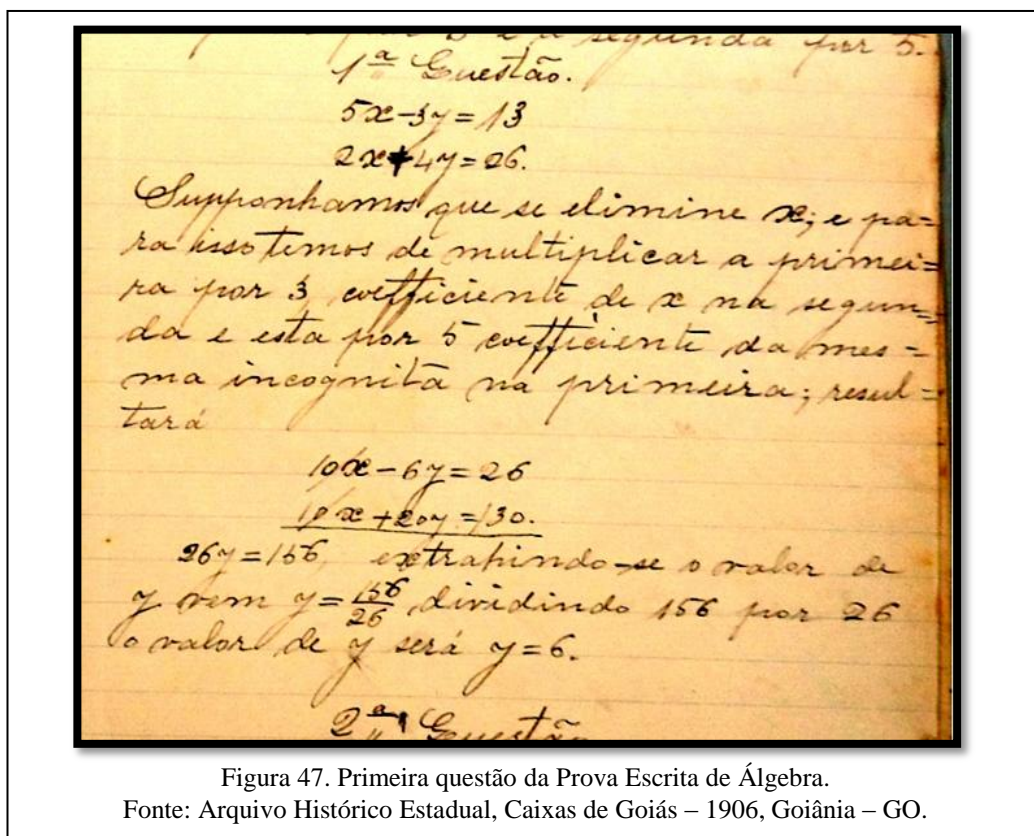 e a segunda por 5.
1ª Questão.
5x-3y=13
2x+4y=26.
Supponhamos que se elimine x; e pa=
ra isso temos de multiplicar a primei=
ra por 3, coefficiente de x na segun=
da e esta por 5 coefficiente da mes=
ma incognita na primeira; resul=
tará
10x-6y=26
10x+20y=130.
26y=156, extrahindo-se o valor de
y vem y=156/26, dividindo 156 por 26
o valor de y será y=6.
2ª Questão
Figura 47. Primeira questão da Prova Escrita de Álgebra.
Fonte: Arquivo Histórico Estadual, Caixas de Goiás – 1906, Goiânia – GO.